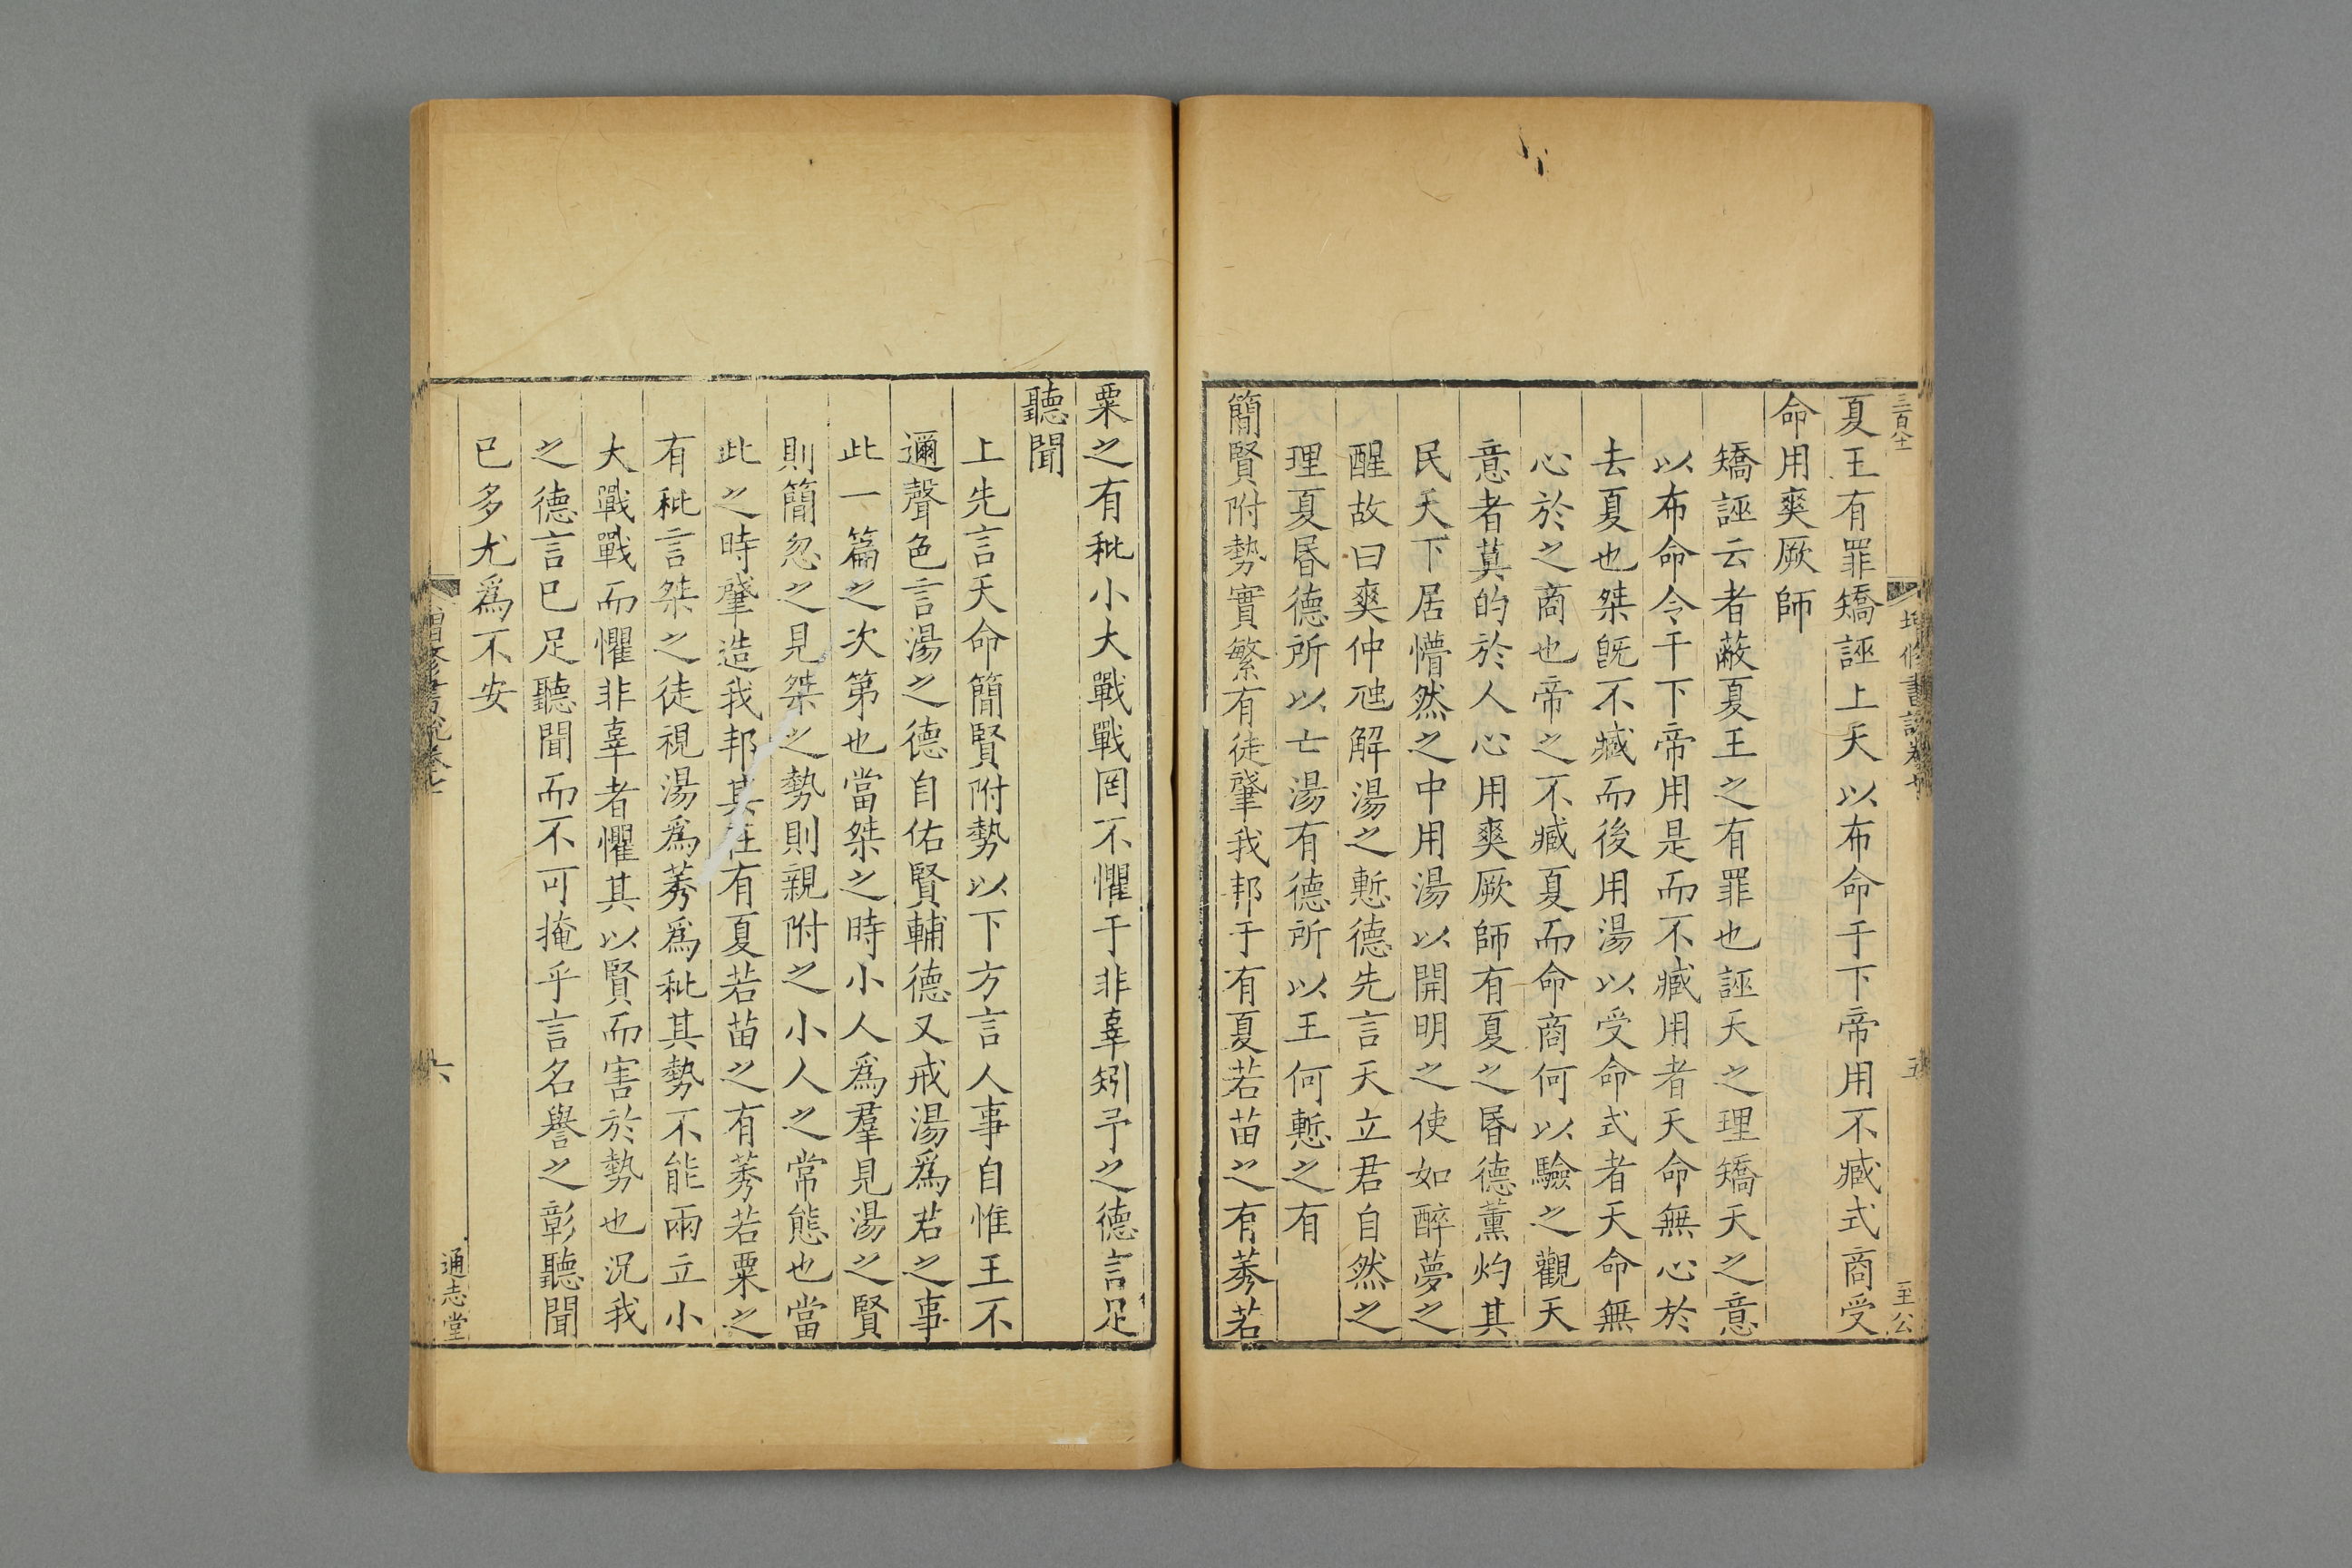 三百八十
夏王有罪矯誣上天以布命于下帝用不臧式商受
命用爽厥師
矯誣云者蔽夏王之有罪也誣天之理矯天之意
以布命令于下帝用是而不臧用者天命無心於
去夏也桀旣不臧而後用湯以受命式者天命無
心於之商也帝之不臧夏而命商何以驗之觀天
意者莫的於人心用爽厥師有夏之昬德薰灼其
民天下居懵然之中用湯以開明之使如醉夢之
醒故曰爽仲虺解湯之慙德先言天立君自然之
理夏昬德所以亡湯有德所以王何慙之有
簡賢附勢實繁有徒肇我邦于有夏若苗之有莠若
粟之有秕小大戰戰罔不懼于非辜矧予之德言足
聽聞
上先言天命簡賢附勢以下方言人事自惟王不
邇聲色言湯之德自佑賢輔德又戒湯爲君之事
此一篇之次第也當桀之時小人爲羣見湯之賢
則簡忽之見桀之勢則親附之小人之常態也當
此之時肇造我邦其在有夏若苗之有莠若粟之
有秕言桀之徒視湯爲莠爲秕其勢不能兩立小
大戰戰而懼非辜者懼其以賢而害於勢也況我
之德言已足聽聞而不可掩乎言名譽之彰聽聞
已多尤爲不安
增修書說卷七
六
通志堂